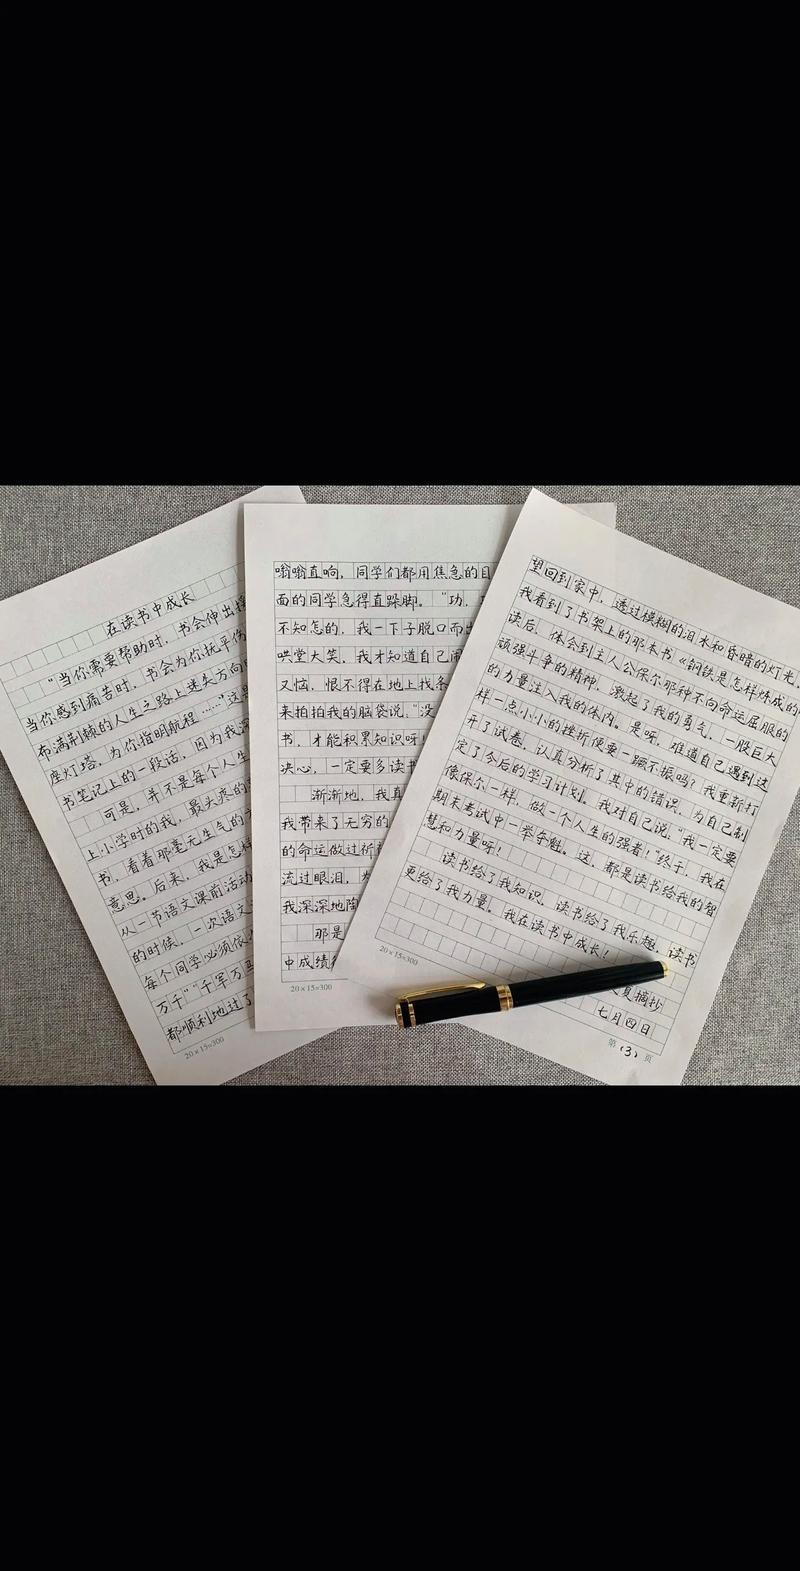 在读书中成长
“当你需要帮助时，书会伸出援
当你感到痛苦时，书会为你抚平伤
布满荆棘的人生之路上迷失方向时
座灯塔，为你指明航程……”这是
书笔记上的一段话，因为我深
可是，并不是每个人生
上小学时的我，最头疼的
书，看着那毫无生气的
意思。后来，我是怎样
从一节语文课前活动
的时候，一次语文
每个同学必须依
万千”“千军万马
都顺利地过了
20×15=300
嗡嗡直响，同学们都用焦急的目
面的同学急得直跺脚。“功，
不知怎的，我一下子脱口而出
哄堂大笑，我才知道自己闹
又恼，恨不得在地上找条
来拍拍我的脑袋说，“没
书，才能积累知识呀！
决心，一定要多读书
渐渐地，我真
我带来了无穷的
的命运做过祈
流过眼泪，为
我深深地陶
那是
中成绩
20×15=300
望回到家中，透过模糊的泪水和昏暗的灯光，
我看到了书架上的那本书《钢铁是怎样炼成的
读后，体会到主人公保尔那种不向命运屈服的
顽强斗争的精神，激起了我的勇气，一股巨大
的力量注入我的体内。是呀，难道自己遇到这
样一点小小的挫折便要一蹶不振吗？我重新打
开了试卷，认真分析了其中的错误，为自己制
定了今后的学习计划。我对自己说，“我一定要
像保尔一样，做一个人生的强者！”终于，我在
期末考试中一举夺魁。这，都是读书给我的智
慧和力量呀！
读书给了我知识，读书给了我乐趣，读书
更给了我力量。我在读书中成长！
夏摘抄
七月四日
20×15=300
第（3）页